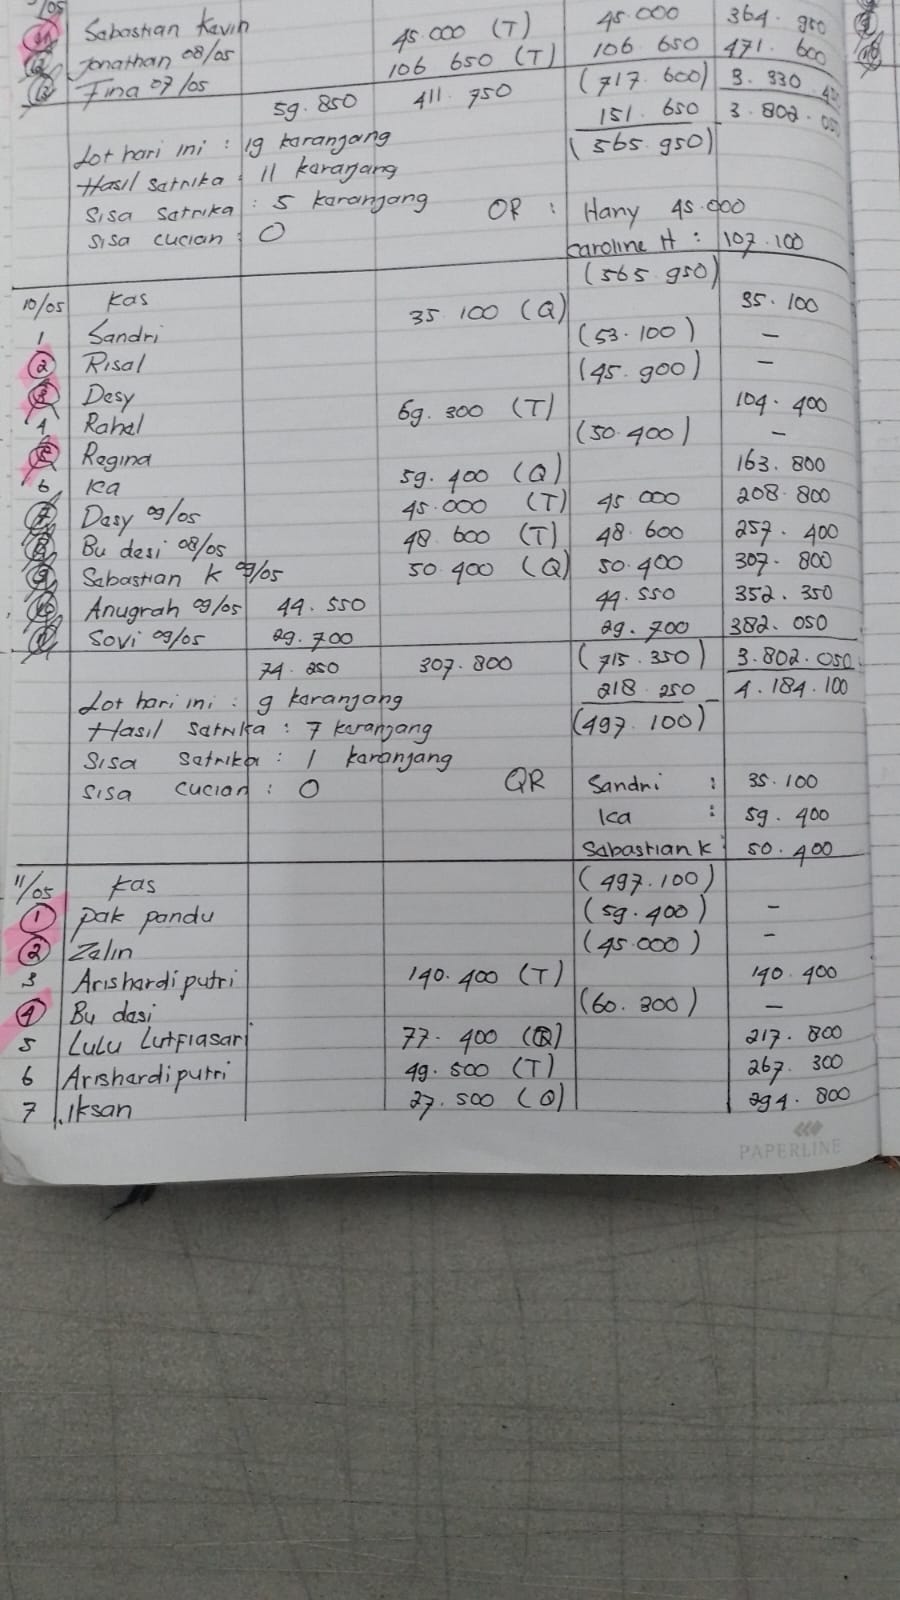 /05
11 Sabastian Kevin 45.000 (T) 45.000 364.950
12 Jonathan 08/05 106 650 (T) 106 650 471.600
13 Fina 07/05 (717.600) 3.330
59.850 411.750 151.650 3.802.050
(565.950)
Lot hari ini : 19 karanjang
Hasil satrika : 11 karanjang
Sisa satrika : 5 karanjang QR : Hany 45.000
Sisa cucian : 0 Caroline H : 107.100
(565 950)
10/05 Kas
1 Sandri 35.100 (Q) 35.100
2 Risal (53.100) –
3 Desy (45.900) –
4 Rahel 69.300 (T) 104.400
5 Regina (50.400) –
6 Ica 59.400 (Q) 163.800
7 Dasy 09/05 45.000 (T) 45 000 208.800
8 Bu desi 08/05 48 600 (T) 48.600 257.400
9 Sabastian K 09/05 50 400 (Q) 50.400 307.800
10 Anugrah 09/05 44.550 44.550 352.350
11 Sovi 09/05 29.700 29.700 382.050
74.250 307.800 (715.350) 3.802.050
Lot hari ini : 9 karanjang 218.250 4.184.100
Hasil satrika : 7 karanjang (497.100)
Sisa satrika : 1 karanjang
Sisa cucian : 0 QR Sandri : 35.100
Ica : 59.400
Sabastian K : 50.400
11/05 Kas (497.100)
1 Pak pandu (59.400) –
2 Zalin (45.000) –
3 Arishardi putri 140.400 (T) 140.400
4 Bu dasi (60.300) –
5 Lulu Lutfiasari 77.400 (Q) 217.800
6 Arishardi putri 49.500 (T) 267.300
7 Iksan 27.500 (Q) 294.800
PAPERLINE